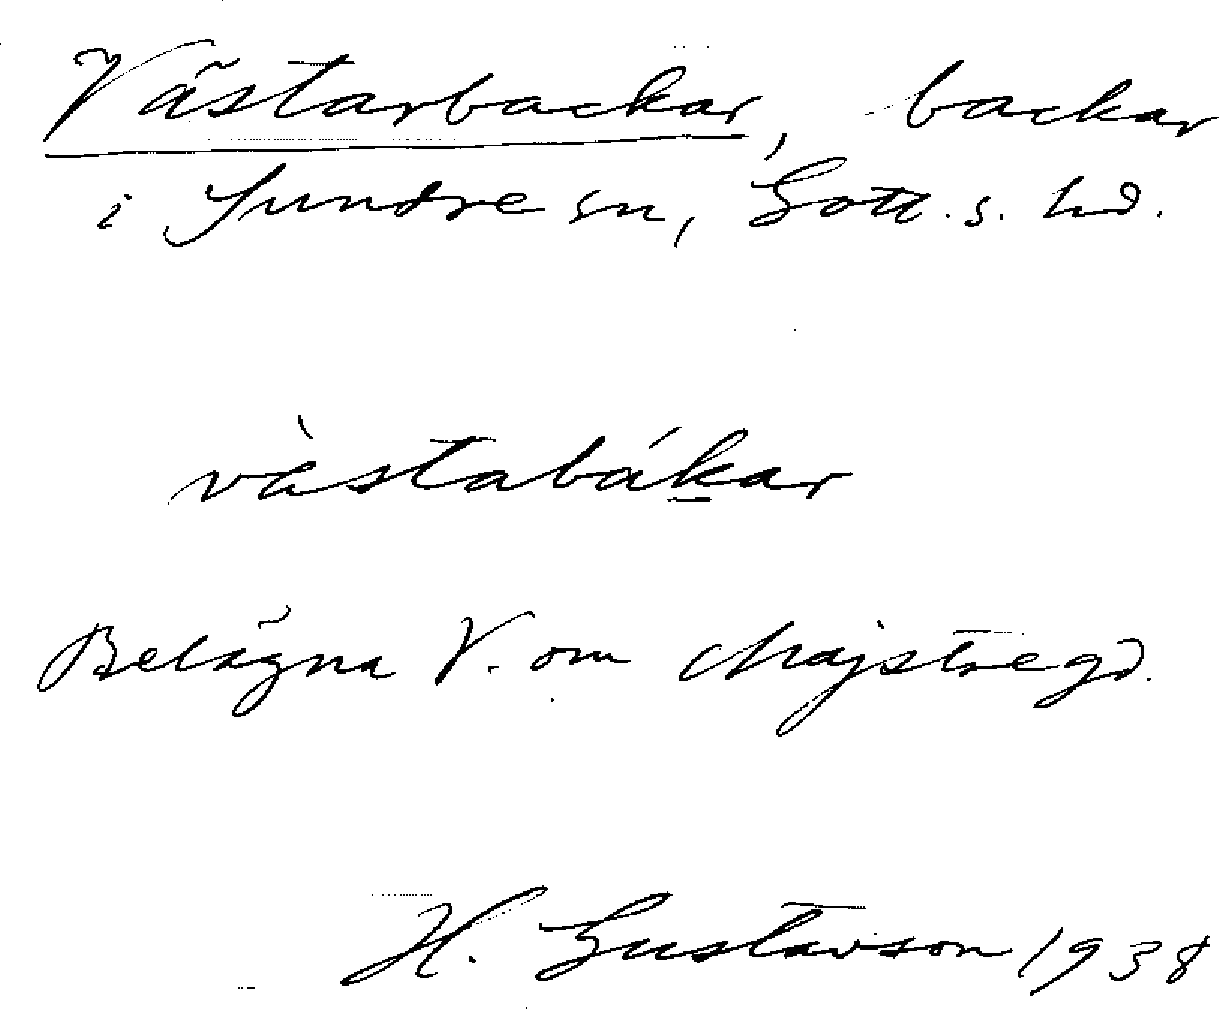 Västarbackar, backar
i Sundre sn, Gotl. s. hd.
vàstabákar
Belägna V. om Majstregd.
H. Gustavson 1938